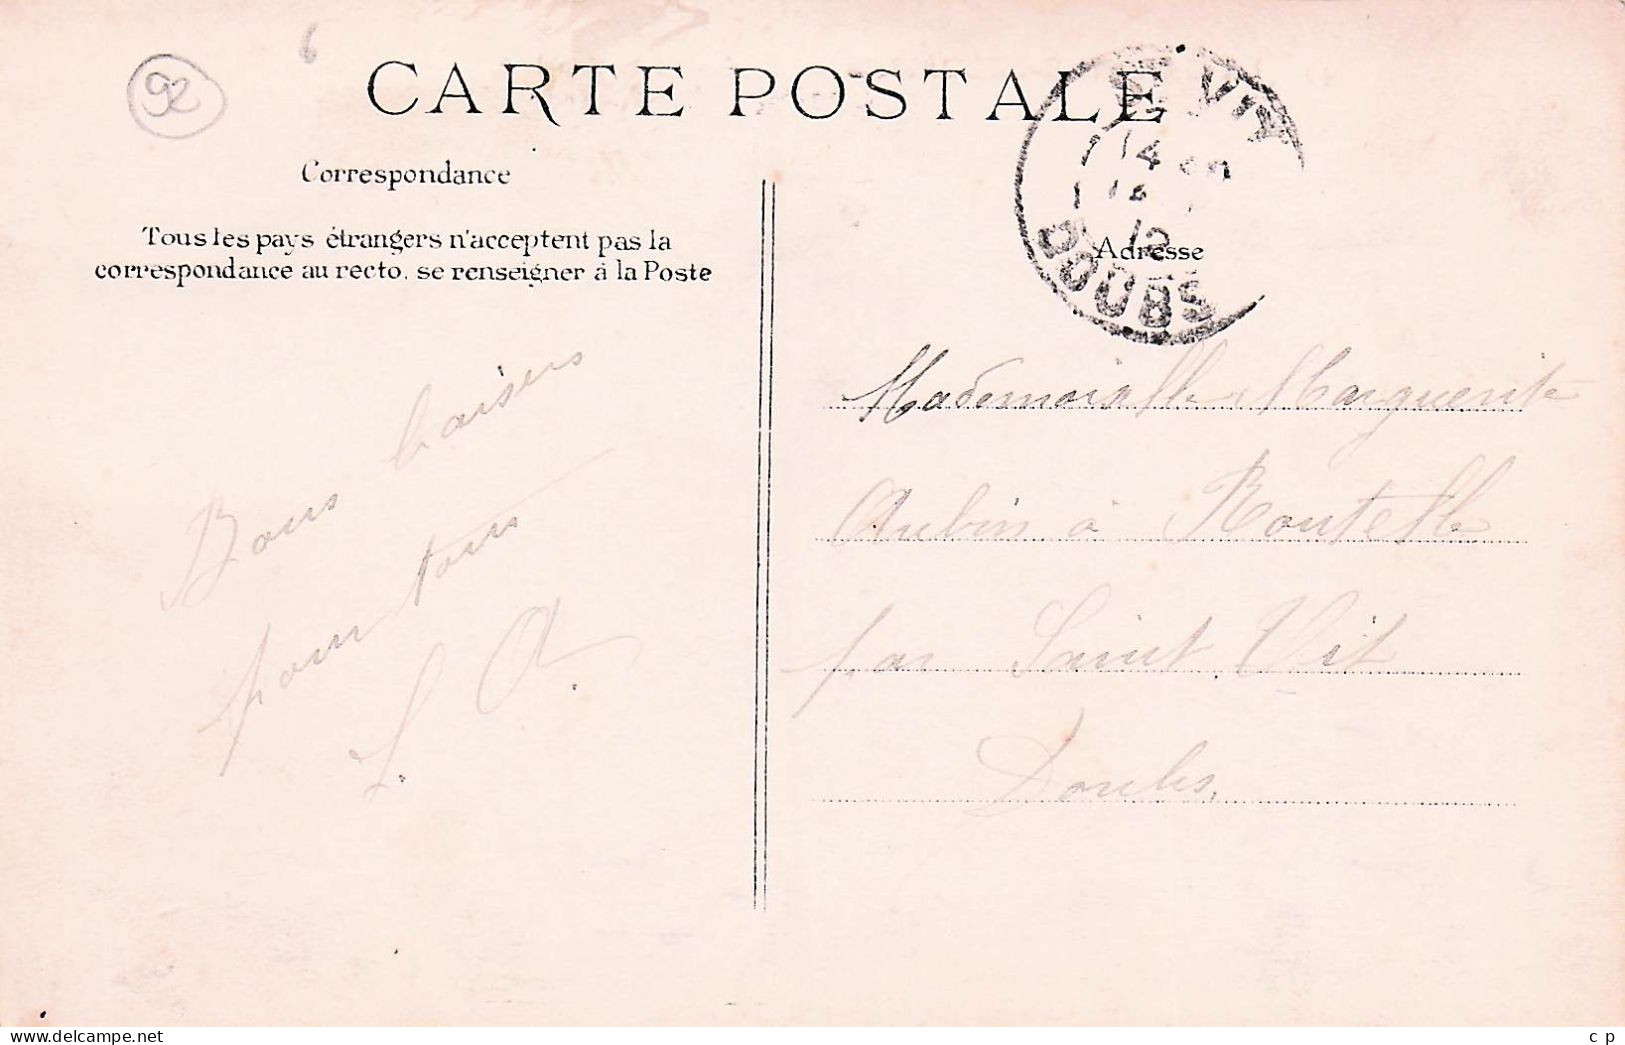 92
6
CARTE POSTALE
Correspondance
Tous les pays étrangers n'acceptent pas la
correspondance au recto, se renseigner à la Poste
Bons baisers
pour tous
L. A.
VIT
14
12
DOUBS
Adresse
Mademoiselle Marguerite
Aubin à Routelle
par Saint Vit
Doubs.
©www.delcampe.net
c p